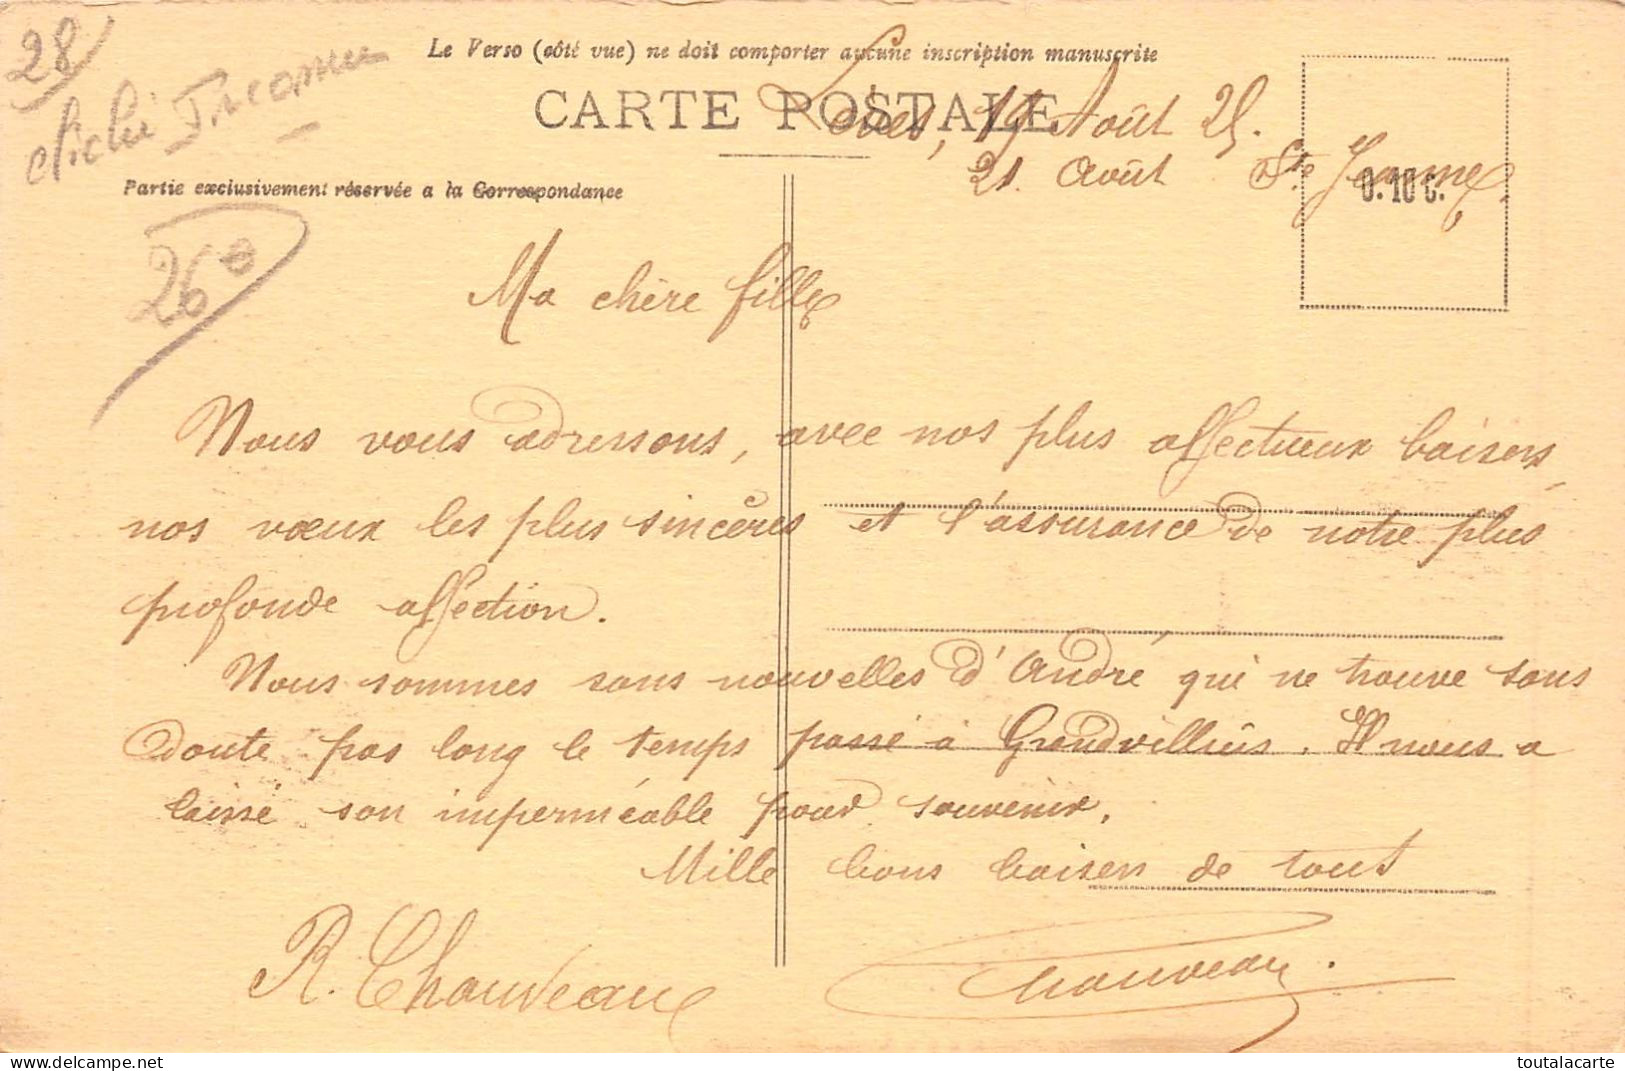 28
cliché Inconnu
Le Verso (côté vue) ne doit comporter aucune inscription manuscrite
CARTE POSTALE
19 Août 25.
21 Août Ste Jeanne.
0.10 c.
Partie exclusivement réservée a la Correspondance
26
Ma chère fille
Nous vous adressons, avec nos plus affectueux baisers,
nos vœux les plus sincères et l'assurance de notre plus
profonde affection.
Nous sommes sans nouvelles d'André qui ne trouve sans
doute pas long le temps passé à Grandvilliers. Il nous a
laissé son imperméable pour souvenir.
Mille bons baisers de tous
R. Chauveau
Chauveau.
Delcampe.net
toutalacarte